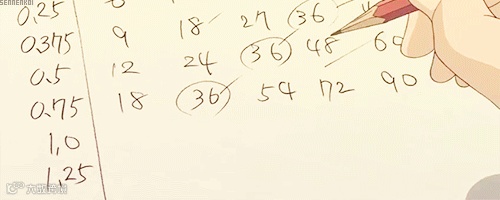 SENNENKOI
0.25 18 27 36
0.375 9 24 36 48 60
0.5 12 36 54 72 90
0.75 18
1,0
1,25